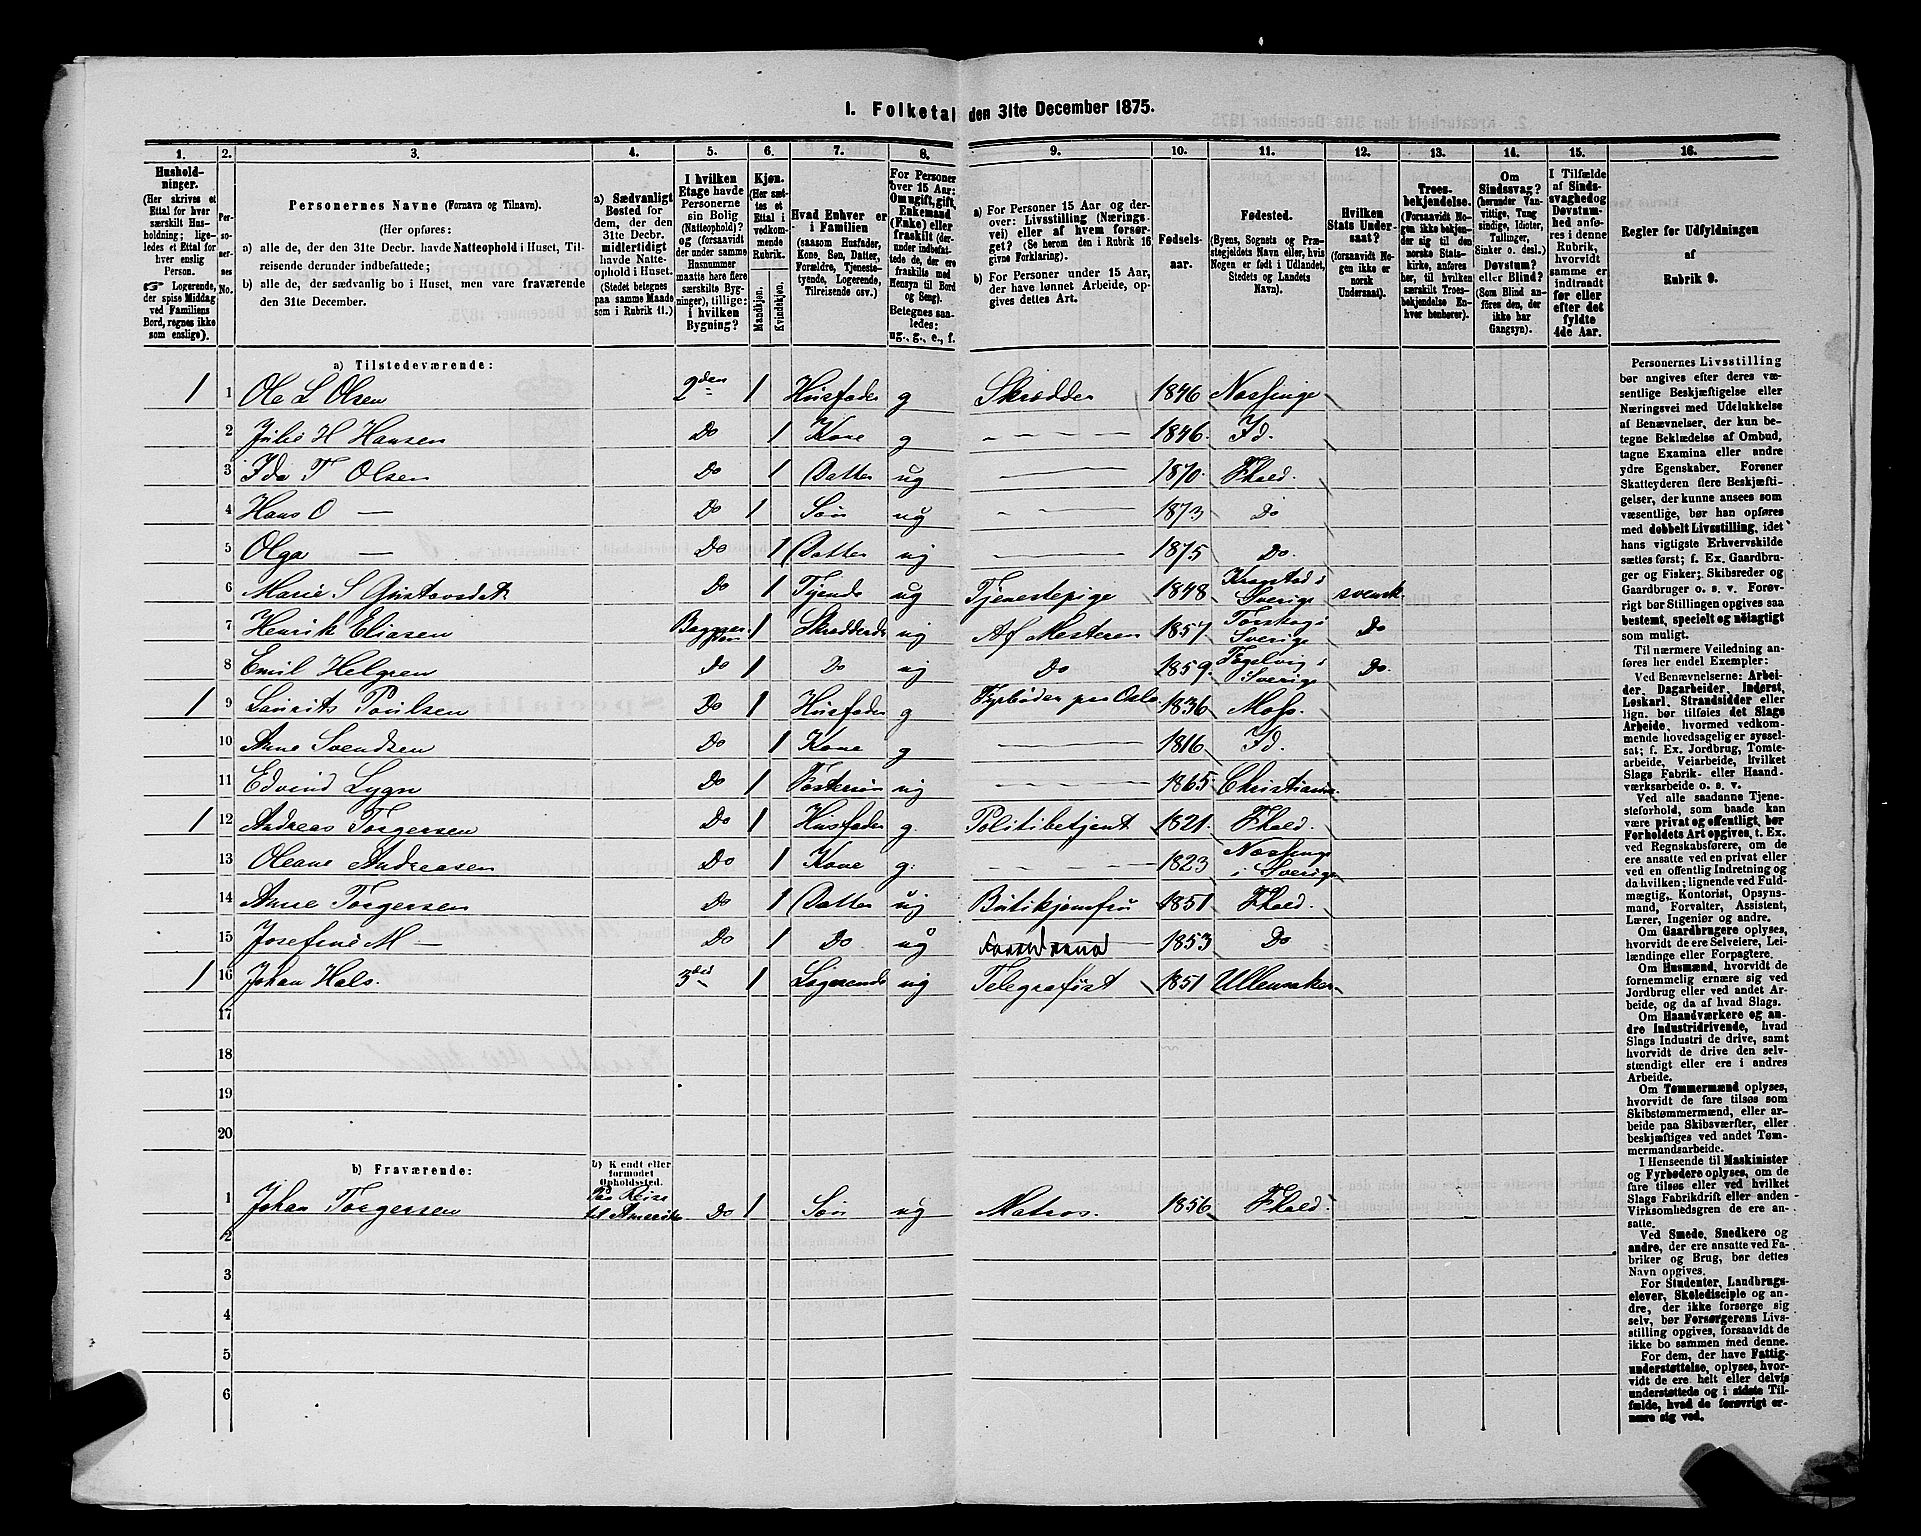 I. Folketal den 31te December 1875.
1. 2. 3. 4. 5. 6. 7. 8. 9. 10. 11. 12. 13. 14. 15. 16.
Husholdninger.
(Her skrives et Ettal for hver særskilt Husholdning; ligeledes et Ettal for hver enslig Person.
Logerende, der spise Middag ved Familiens Bord, regnes ikke som enslige).
Personernes No.
Personernes Navne (Fornavn og Tilnavn).
(Her opføres:
a) alle de, der den 31te Decbr. havde Natteophold i Huset, Tilreisende derunder indbefattede;
b) alle de, der sædvanlig bo i Huset, men vare fraværende den 31te December.
a) Sædvanligt Bosted for dem, der den 31te Decbr. midlertidigt havde Natteophold i Huset. (Stedet betegnes paa samme Maade som i Rubrik 11.)
I hvilken Etage havde Personerne sin Bolig (Natteophold)? og (forsaavidt der under samme Husnummer maatte høre flere særskilte Bygninger), tillige: i hvilken Bygning?
Kjøn. (Her sættes et Ettal i vedkommende Rubrik. Mandkjøn. Kvindekjøn.
Hvad Enhver er i Familien (saasom Husfader, Kone, Søn, Datter, Forældre, Tjenestetyende, Logerende, Tilreisende osv.)
For Personer over 15 Aar: Om ugift, gift, Enkemand (Enke) eller fraskilt (derunder indbefattede de, der ere fraskilte med Hensyn til Bord og Seng). Betegnes saaledes: ug., g., e., f.
a) For Personer 15 Aar og derover: Livsstilling (Næringsvei) eller af hvem forsørget? (Se herom den i Rubrik 16 givne Forklaring).
b) For Personer under 15 Aar, der have lønnet Arbeide, opgives dettes Art.
Fødselsaar.
Fødested. (Byens, Sognets og Præstegjeldets Navn eller, hvis Nogen er født i Udlandet, Stedets og Landets Navn).
Hvilken Stats Undersaat? (forsaavidt Nogen ikke er norsk Undersaat).
Troesbekjendelse. (Forsaavidt Nogen ikke bekjender sig til den norske Statskirke, anføres her, til hvilken særskilt Troesbekjendelse Enhver henhører).
Om Sindssvag? (herunder Vanvittige, Idioter, Tullinger, Sinker o. desl.) Døvstum? eller Blind? (Som Blind anføres den, der ikke har Gangsyn).
I Tilfælde af Sindssvaghed og Døvstumhed anføres i denne Rubrik, hvorvidt samme er indtraadt før eller efter det fyldte 4de Aar.
Regler før Udfyldningen af Rubrik 9.
a) Tilstedeværende:
1 1 Ole L Olsen 2den 1 Husfader g Skrædder 1846 Nossinge
2 Julie H Hansen Do 1 Kone g 1846 Id.
3 Ida T Olsen Do 1 Datter ug 1870 Fhald.
4 Hans O — Do 1 Søn ug 1873 Do
5 Olga — Do 1 Datter ug 1875 Do.
6 Marie S Gustavsdat. Do 1 Tyende ug Tjenestepige 1848 i Sverige svensk
7 Henrik Eliasen 1 ug Af Mesteren 1857 i Sverige Do
8 Emil Helgren Do 1 Do ug Do 1859 i Sverige Do
1 9 Laurits Poulsen Do 1 Husfader g Fyrbøder paa Oslo 1836 Moss.
10 Anne Svendsen Do 1 Kone g 1816 Id.
11 Edvind Lygn Do 1 Fostersøn ug 1865 Christiania
1 12 Andreas Torgersen Do 1 Husfader g. Politibetjent 1821 Fhald.
13 Oleane Andreasen Do 1 Kone g. 1823 Nossinge i Sverige
14 Anne Torgersen Do 1 Datter ug Butikjomfru 1851 Fhald.
15 Josefine M — Do 1 Do ug 1853 Do
1 16 Johan Hals. 3die 1 Logerende ug Telegrafist 1851 Ullensaker
17
18
19
20
b) Fraværende:
b) Kendt eller formodet Opholdssted.
1 Johan Torgersen Paa Reise til Amerika Do 1 Søn ug Matros. 1856 Fhald
2
3
4
5
6
Personernes Livsstilling bør angives efter deres væsentlige Beskjæftigelse eller Næringsvei med Udelukkelse af Benævnelser, der kun betegne Beklædelse af Ombud, tagne Examina eller andre ydre Egenskaber. Forener Skatteyderen flere Beskjæftigelser, der kunne ansees som væsentlige, bør han opføres med dobbelt Livsstilling, idet hans vigtigste Erhvervskilde sættes først; f. Ex. Gaardbruger og Fisker; Skibsreder og Gaardbruger o. s. v. Forøvrigt bør Stillingen opgives saa bestemt, specielt og nøiagtigt som muligt.
Til nærmere Veiledning anføres her endel Exempler:
Ved Benævnelserne: Arbeider, Dagarbeider, Inderst, Løskarl, Strandsidder eller lign. bør tilføies det Slags Arbeide, hvormed vedkommende hovedsagelig er sysselsat; f. Ex. Jordbrug, Tomtearbeide, Veiarbeide, hvilket Slags Fabrik- eller Haandværksarbeide o. s. v.
Ved alle saadanne Tjenesteforhold, som baade kan være privat og offentligt, bør Forholdets Art opgives, t. Ex. ved Regnskabsførere, om de ere ansatte ved en privat eller ved en offentlig Indretning og da hvilken; lignende ved Fuldmægtig, Kontorist, Opsynsmand, Forvalter, Assistent, Lærer, Ingeniør og andre.
Om Gaardbrugere oplyses, hvorvidt de ere Selveiere, Leilændinge eller Forpagtere.
Om Husmænd, hvorvidt de fornemmelig ernære sig ved Jordbrug eller ved andet Arbeide, og da af hvad Slags.
Om Haandværkere og andre Industridrivende, hvad Slags Industri de drive, samt hvorvidt de drive den selvstændigt eller ere i andres Arbeide.
Om Tømmermænd oplyses, hvorvidt de fare tilsøs som Skibstømmermænd, eller arbeide paa Skibsværfter, eller beskjæftiges ved andet Tømmermandsarbeide.
I Henseende til Maskinister og Fyrbødere oplyses, om de fare tilsøs eller ved hvilket Slags Fabrikdrift eller anden Virksomhedsgren de ere ansatte.
Ved Smede, Snedkere og andre, der ere ansatte ved Fabriker og Brug, bør dettes Navn opgives.
For Studenter, Landbrugselever, Skoledisciple og andre, der ikke forsørge sig selv, bør Forsørgerens Livsstilling opgives, forsaavidt de ikke bo sammen med denne.
For dem, der have Fattigunderstøttelse, oplyses, hvorvidt de ere helt eller delvis understøttede og i sidste Tilfælde, hvad de forøvrigt ernære sig ved.